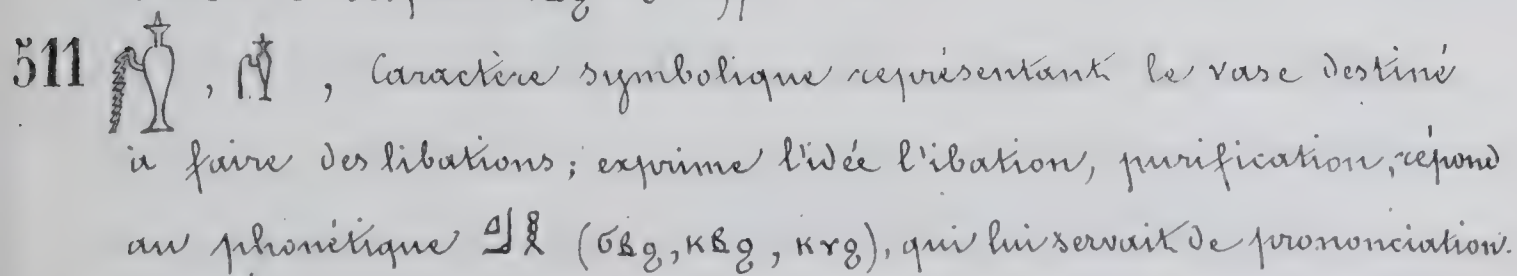 511 , , Caractère symbolique représentant le vase destiné
à faire des libations; exprime l'idée l'ibation, purification, répond
au phonétique 𓈎𓃀𓎛 (ϬⲂϩ, ⲔⲂϩ, ⲔⲨϩ), qui lui servait de prononciation.